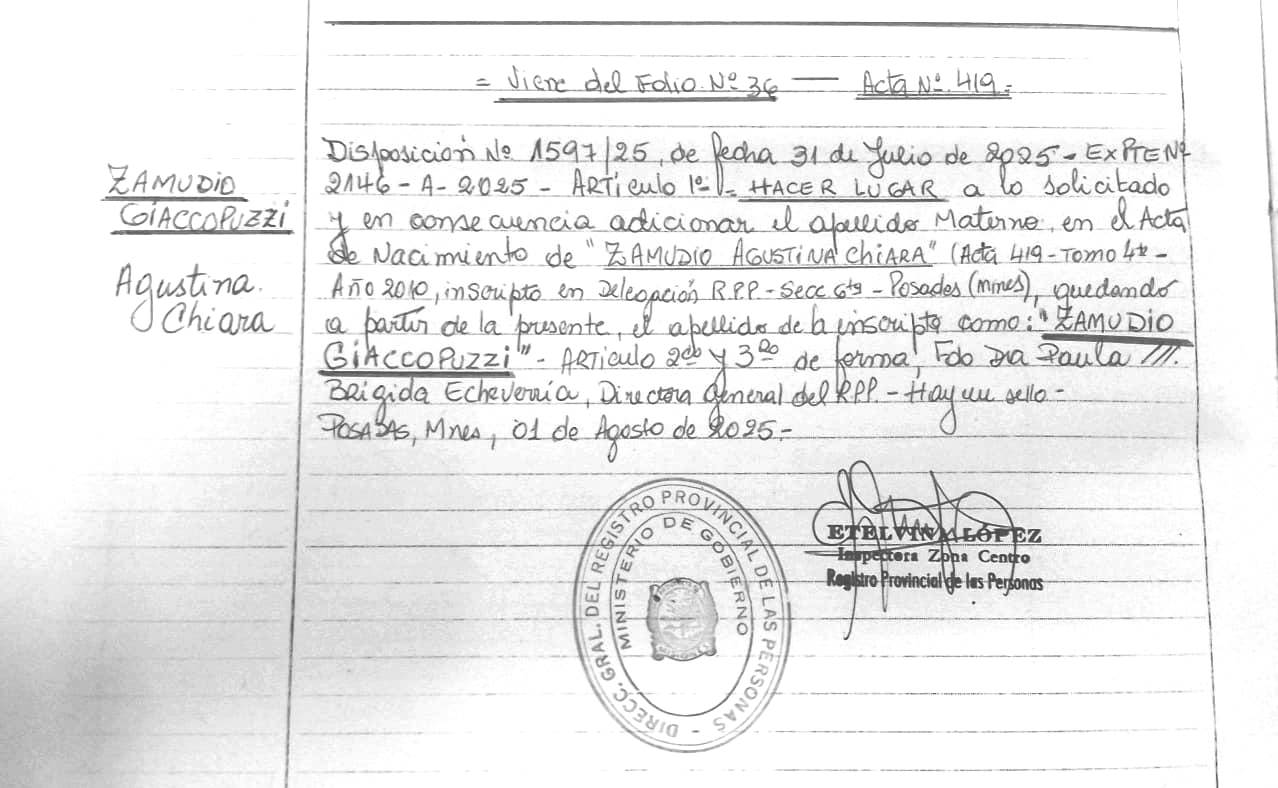 = Viene del Folio Nº 36 — Acta Nº 419=
ZAMUDIO
GIACCOPUZZI
Agustina
Chiara
Disposición Nº 1597/25, de fecha 31 de Julio de 2025 - EXPTE Nº
2146 - A - 2025 - ARTiculo 1º - HACER LUGAR a lo solicitado
y en consecuencia adicionar el apellido Materno, en el Acta
de Nacimiento de "ZAMUDIO AGUSTINA CHIARA" (Acta 419 - Tomo 4to -
Año 2010, inscripto en Delegación R.P.P. - Secc 6ta - Posadas (mnes), quedando
a partir de la presente, el apellido de la inscripta como: "ZAMUDIO
GIACCOPUZZI" - ARTiculo 2do y 3Ro de forma, Fdo Dra Paula M.
Brigida Echeverría, Directora General del RPP. - Hay un sello -
POSADAS, Mnes, 01 de Agosto de 2025.-
DIRECC. GRAL. DEL REGISTRO PROVINCIAL DE LAS PERSONAS -
MINISTERIO DE GOBIERNO
ETELVINA LÓPEZ
Inspectora Zona Centro
Registro Provincial de las Personas